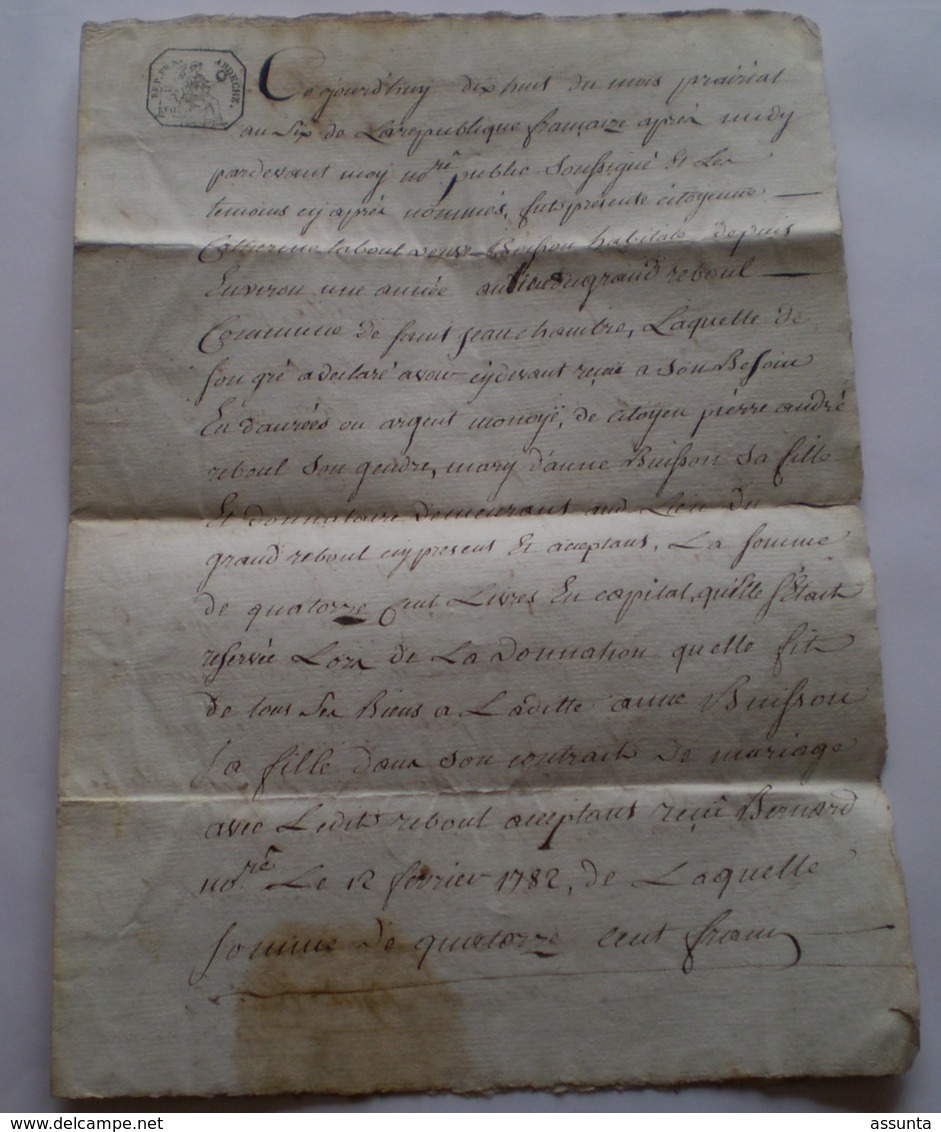 REP. FRA. ARDECHE.
Cejourd'huy dix huit du mois prairéal
an Six de La republique françaize après midy
pardevant moy nore public Soussigné Et Les
temoins cy après nommés, futs présente citoyenne
Catherine reboul veuve Buisson habitate, depuis
Environ une année au Lieu du grand reboul
Commune de saint jean chambre, Laquelle de
son gré a declaré avoir cydevant reçüe a Son Besoin
En danrées ou argent monoyé, de citoyen pierre andré
reboul Son gendre, mary d'anne Buisson Sa fille
Et donnataire demeurans aud. Lieu du
grand reboul cy present Et acceptans, La somme
de quatorze Cent Livres En capital, qu'elle s'Etait
reservée Lors de La Donnation quelle fit
de tous Ses Biens a Laditte anne Buisson
Sa fille dans Son contrait de mariage
avec Ledit reboul acceptans reçu Bernard
nore Le 12 fevrier 1782, de Laquelle
somme de quatorze cent francs
assunta